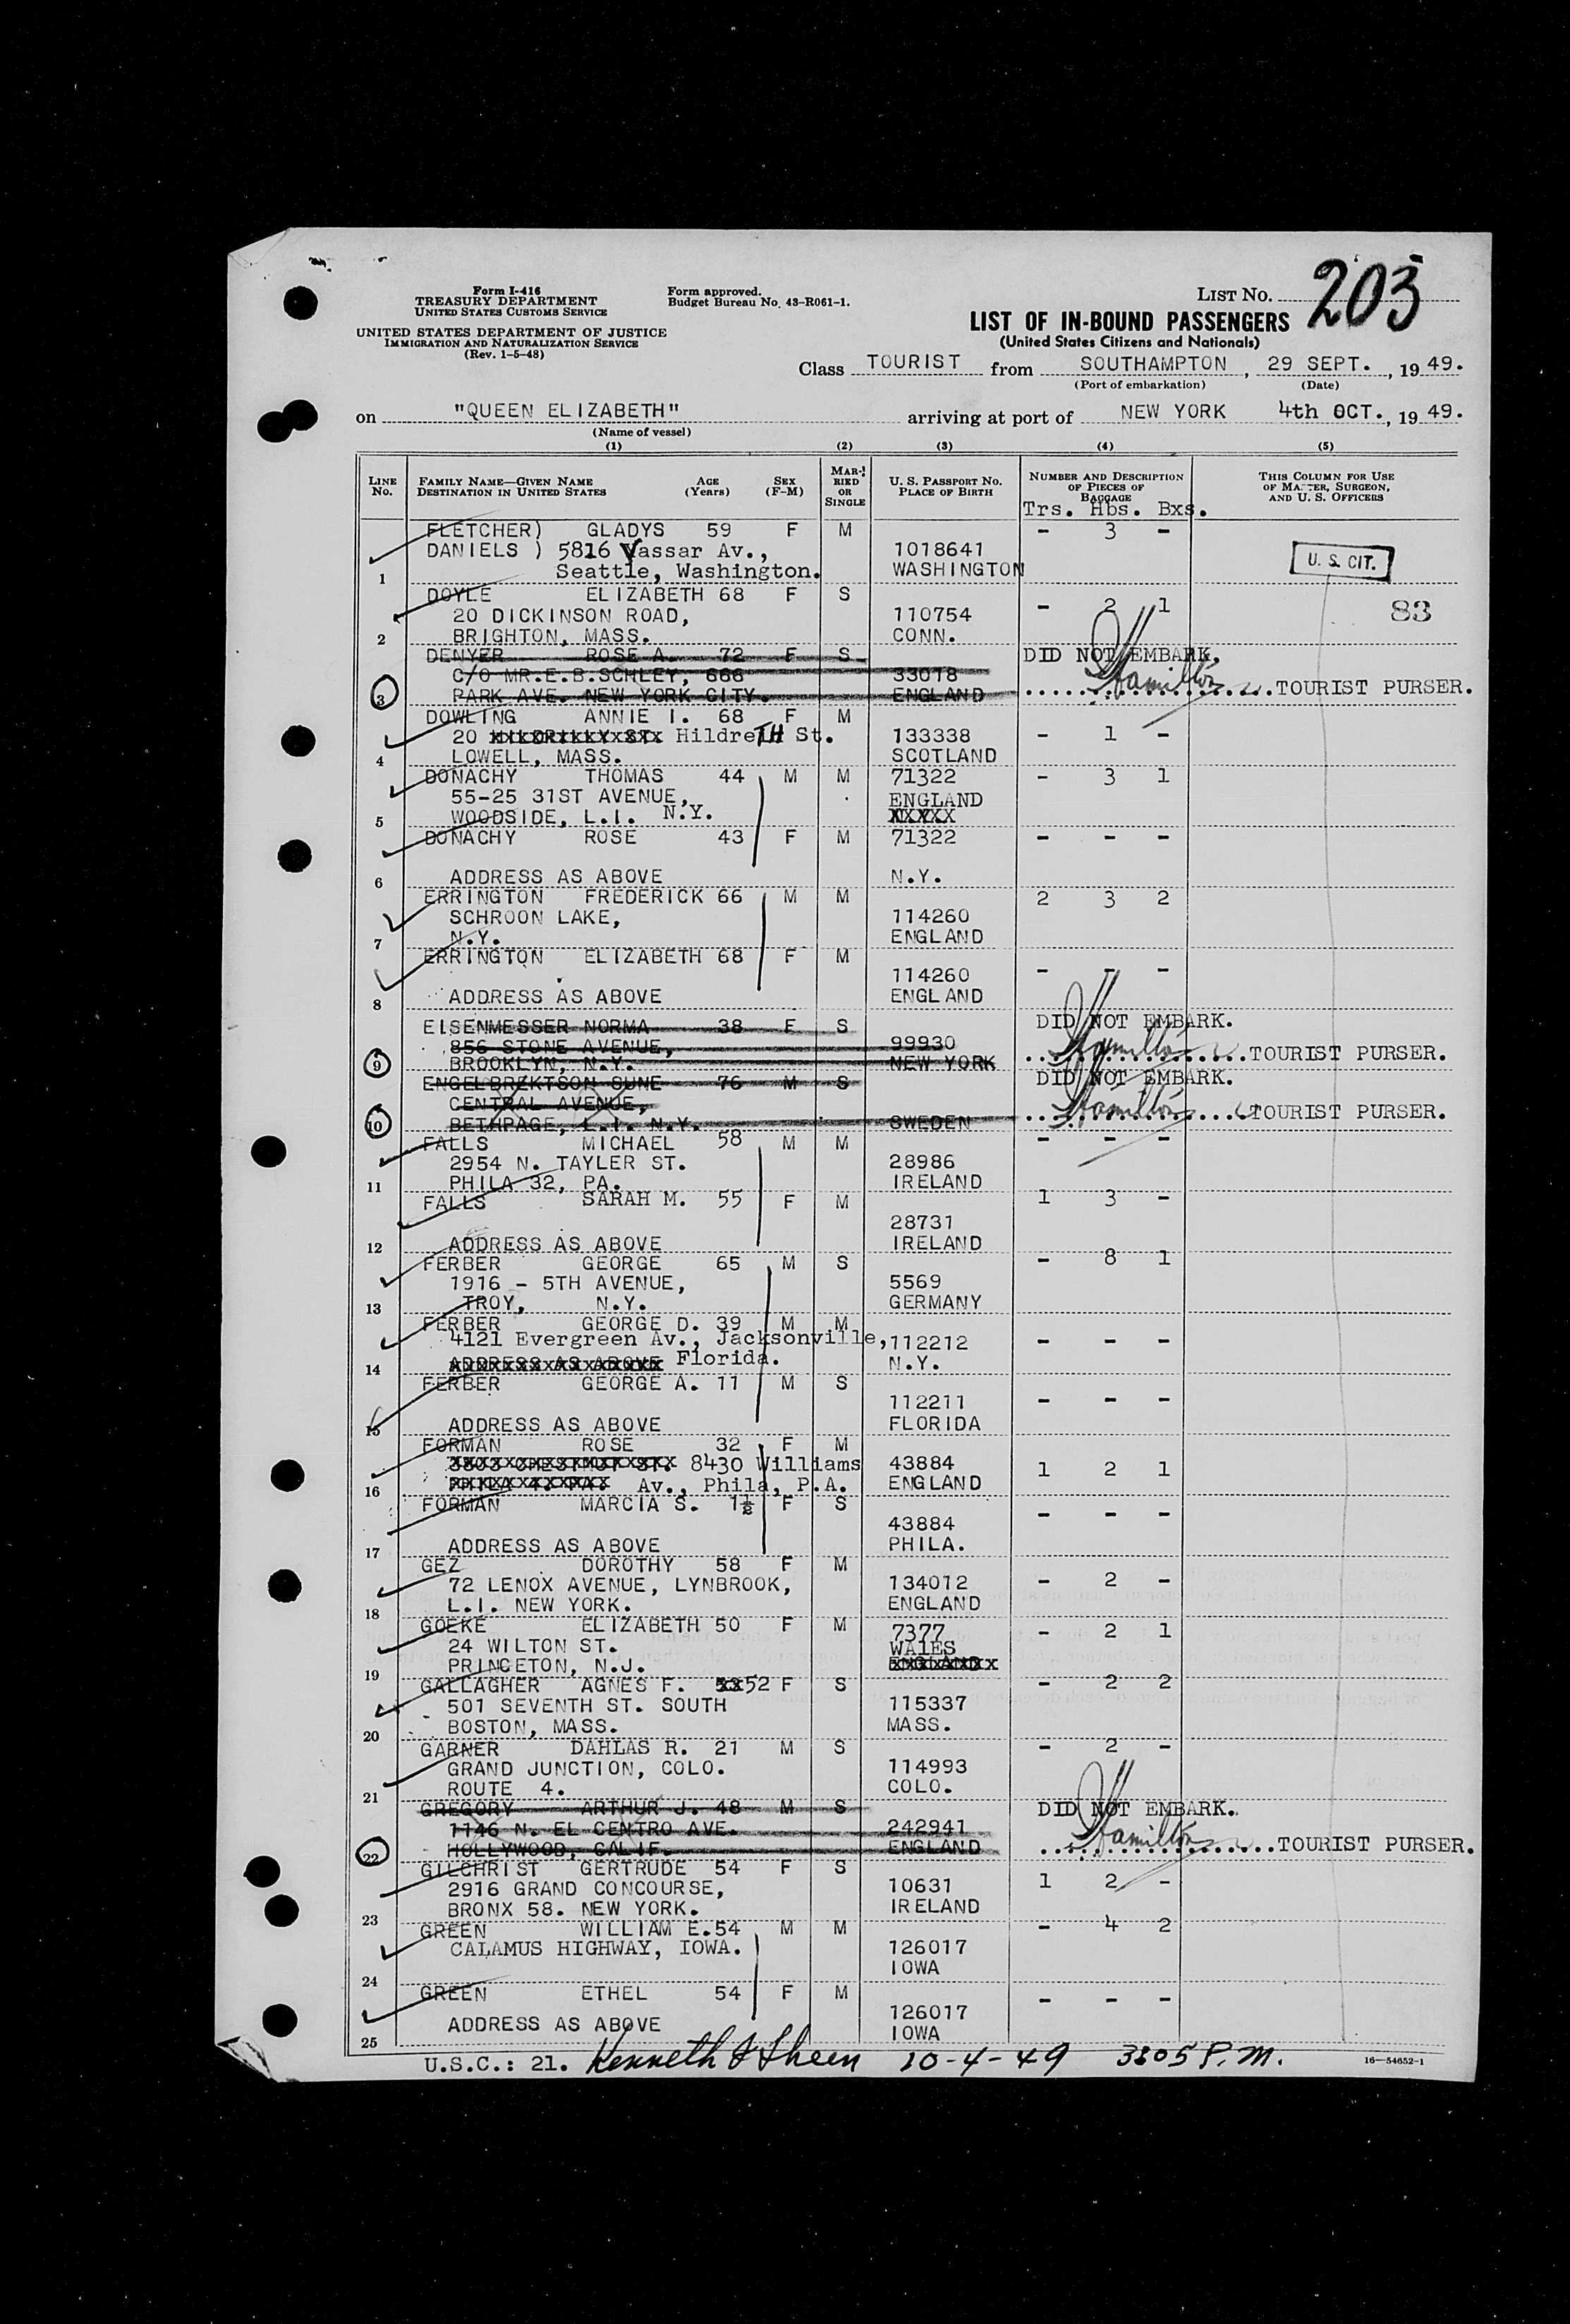 Form I-416
TREASURY DEPARTMENT
UNITED STATES CUSTOMS SERVICE
UNITED STATES DEPARTMENT OF JUSTICE
IMMIGRATION AND NATURALIZATION SERVICE
(Rev. 1-5-48)
Form approved.
Budget Bureau No. 43-R061-1.
LIST NO. 203
LIST OF IN-BOUND PASSENGERS
(United States Citizens and Nationals)
Class TOURIST from SOUTHAMPTON, 29 SEPT., 19 49.
(Port of embarkation) (Date)
on "QUEEN ELIZABETH" arriving at port of NEW YORK 4th OCT., 19 49.
(Name of vessel)
(1) (2) (3) (4) (5)
LINE NO. FAMILY NAME—GIVEN NAME DESTINATION IN UNITED STATES AGE (Years) SEX (F-M) MARRIED OR SINGLE U. S. PASSPORT NO. PLACE OF BIRTH NUMBER AND DESCRIPTION OF PIECES OF BAGGAGE THIS COLUMN FOR USE OF MASTER, SURGEON, AND U. S. OFFICERS
Trs. Hbs. Bxs.
FLETCHER) GLADYS 59 F M - 3 -
DANIELS ) 5816 Vassar Av., 1018641 U. S. CIT.
1 Seattle, Washington. WASHINGTON
DOYLE ELIZABETH 68 F S - 2 1 83
20 DICKINSON ROAD, 110754
2 BRIGHTON, MASS. CONN.
DENYER ROSE A. 72 F S DID NOT EMBARK.
C/O MR.E.B.SCHLEY, 666 33018
3 PARK AVE. NEW YORK CITY. ENGLAND Hamilton TOURIST PURSER.
DOWLING ANNIE I. 68 F M
20 HildreTH St. 133338 - 1 -
4 LOWELL, MASS. SCOTLAND
DONACHY THOMAS 44 M M 71322 - 3 1
55-25 31ST AVENUE, ENGLAND
5 WOODSIDE, L.I. N.Y. XXXXX
DONACHY ROSE 43 F M 71322 - - -
6 ADDRESS AS ABOVE N.Y.
ERRINGTON FREDERICK 66 M M 2 3 2
SCHROON LAKE, 114260
7 N.Y. ENGLAND
ERRINGTON ELIZABETH 68 F M - - -
114260
8 ADDRESS AS ABOVE ENGLAND
EISENMESSER NORMA 38 F S DID NOT EMBARK.
856 STONE AVENUE, 99930
9 BROOKLYN, N.Y. NEW YORK Hamilton TOURIST PURSER.
ENGELBREKTSON SUNE 76 M S DID NOT EMBARK.
CENTRAL AVENUE,
10 BETHPAGE, L.I. N.Y. SWEDEN Hamilton TOURIST PURSER.
FALLS MICHAEL 58 M M - - -
2954 N. TAYLER ST. 28986
11 PHILA 32, PA. IRELAND
FALLS SARAH M. 55 F M 1 3 -
28731
12 ADDRESS AS ABOVE IRELAND
FERBER GEORGE 65 M S - 8 1
1916 - 5TH AVENUE, 5569
13 TROY, N.Y. GERMANY
FERBER GEORGE D. 39 M M
4121 Evergreen Av., Jacksonville, 112212 - - -
14 ADDRESS AS ABOVE Florida. N.Y.
FERBER GEORGE A. 11 M S
112211 - - -
15 ADDRESS AS ABOVE FLORIDA
FORMAN ROSE 32 F M
3803 CHESTNUT ST. 8430 Williams 43884 1 2 1
16 PHILA 4. PA. Av., Phila, P.A. ENGLAND
FORMAN MARCIA S. 1½ F S - - -
43884
17 ADDRESS AS ABOVE PHILA.
GEZ DOROTHY 58 F M
72 LENOX AVENUE, LYNBROOK, 134012 - 2 -
18 L.I. NEW YORK. ENGLAND
GOEKE ELIZABETH 50 F M 7377 - 2 1
24 WILTON ST. WALES
19 PRINCETON, N.J. ENGLAND
GALLAGHER AGNES F. 52 F S - 2 2
501 SEVENTH ST. SOUTH 115337
20 BOSTON, MASS. MASS.
GARNER DAHLAS R. 21 M S - 2 -
GRAND JUNCTION, COLO. 114993
21 ROUTE 4. COLO.
GREGORY ARTHUR J. 48 M S DID NOT EMBARK.
1146 N. EL CENTRO AVE. 242941
22 HOLLYWOOD, CALIF. ENGLAND Hamilton TOURIST PURSER.
GILCHRIST GERTRUDE 54 F S
2916 GRAND CONCOURSE, 10631 1 2 -
23 BRONX 58. NEW YORK. IRELAND
GREEN WILLIAM E. 54 M M - 4 2
CALAMUS HIGHWAY, IOWA. 126017
24 IOWA
GREEN ETHEL 54 F M - - -
126017
25 ADDRESS AS ABOVE IOWA
U.S.C.: 21. Kenneth J Sheen 10-4-49 3:05 P.M.
16—54652-1